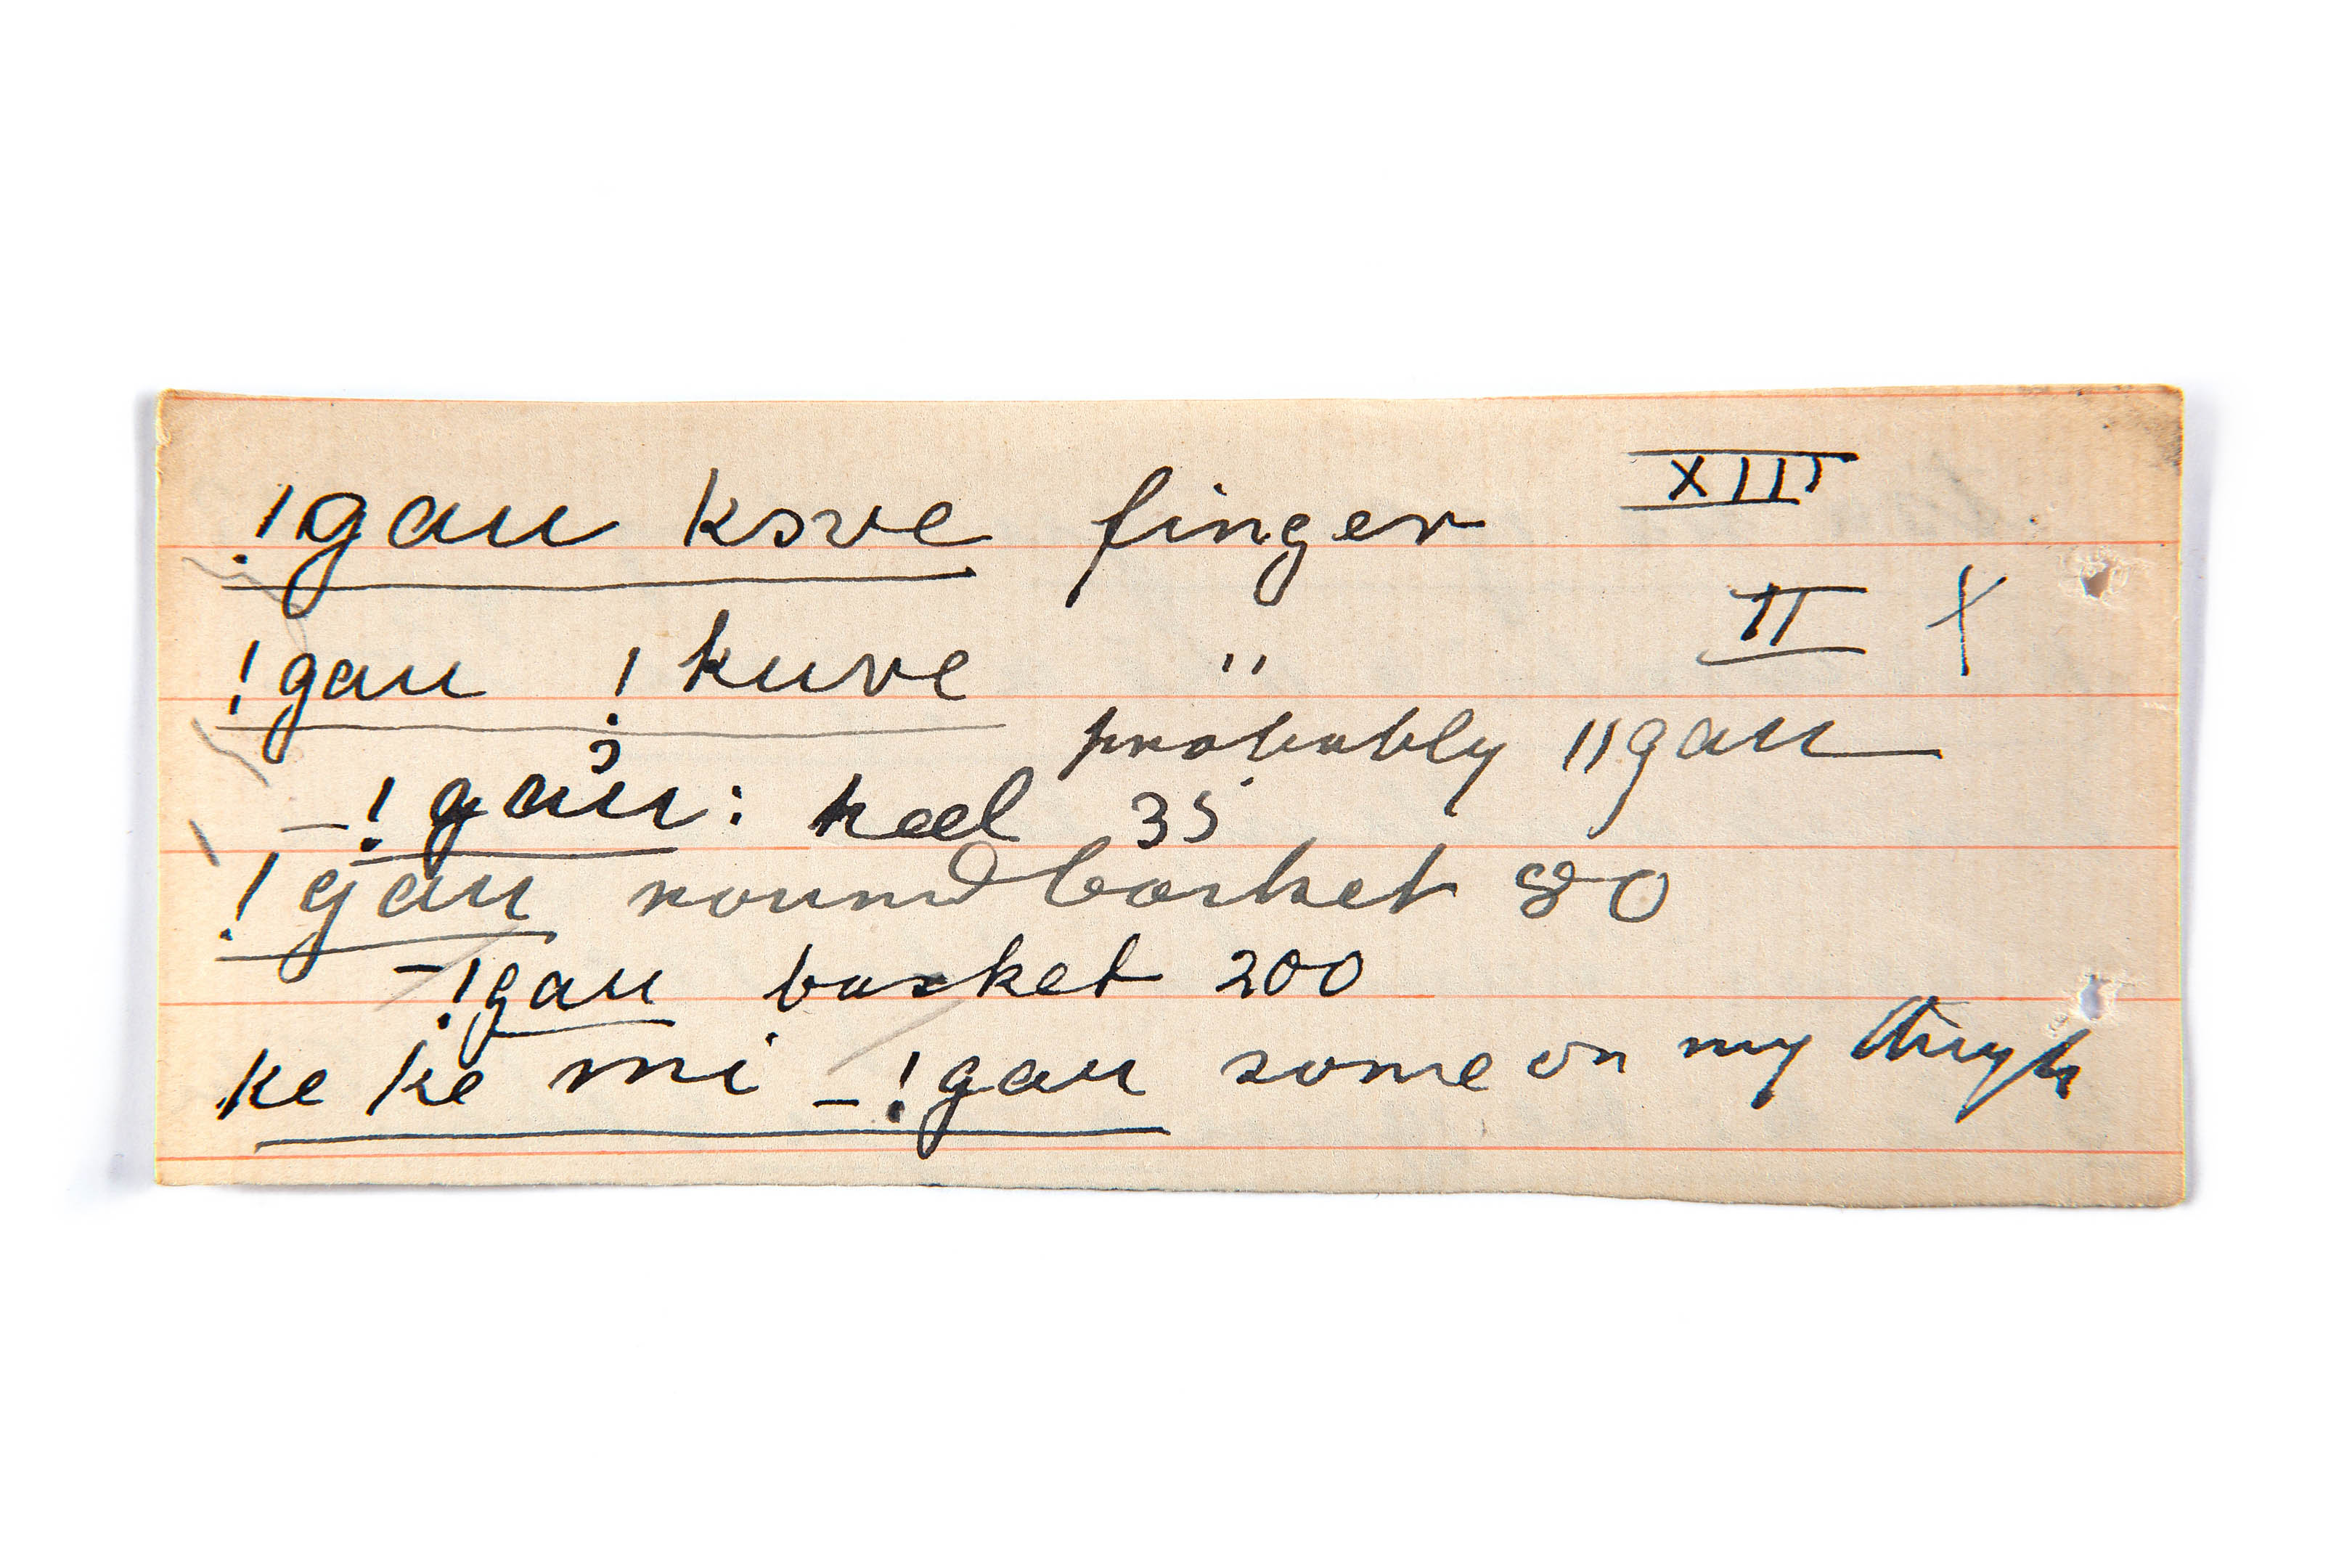 !gau ksve finger XIII
!gau !kuve " II X
probably ||gau
_!gau: heel 35
!gau round basket 80
_!gau basket 200
ke ke mi _!gau some on my thigh